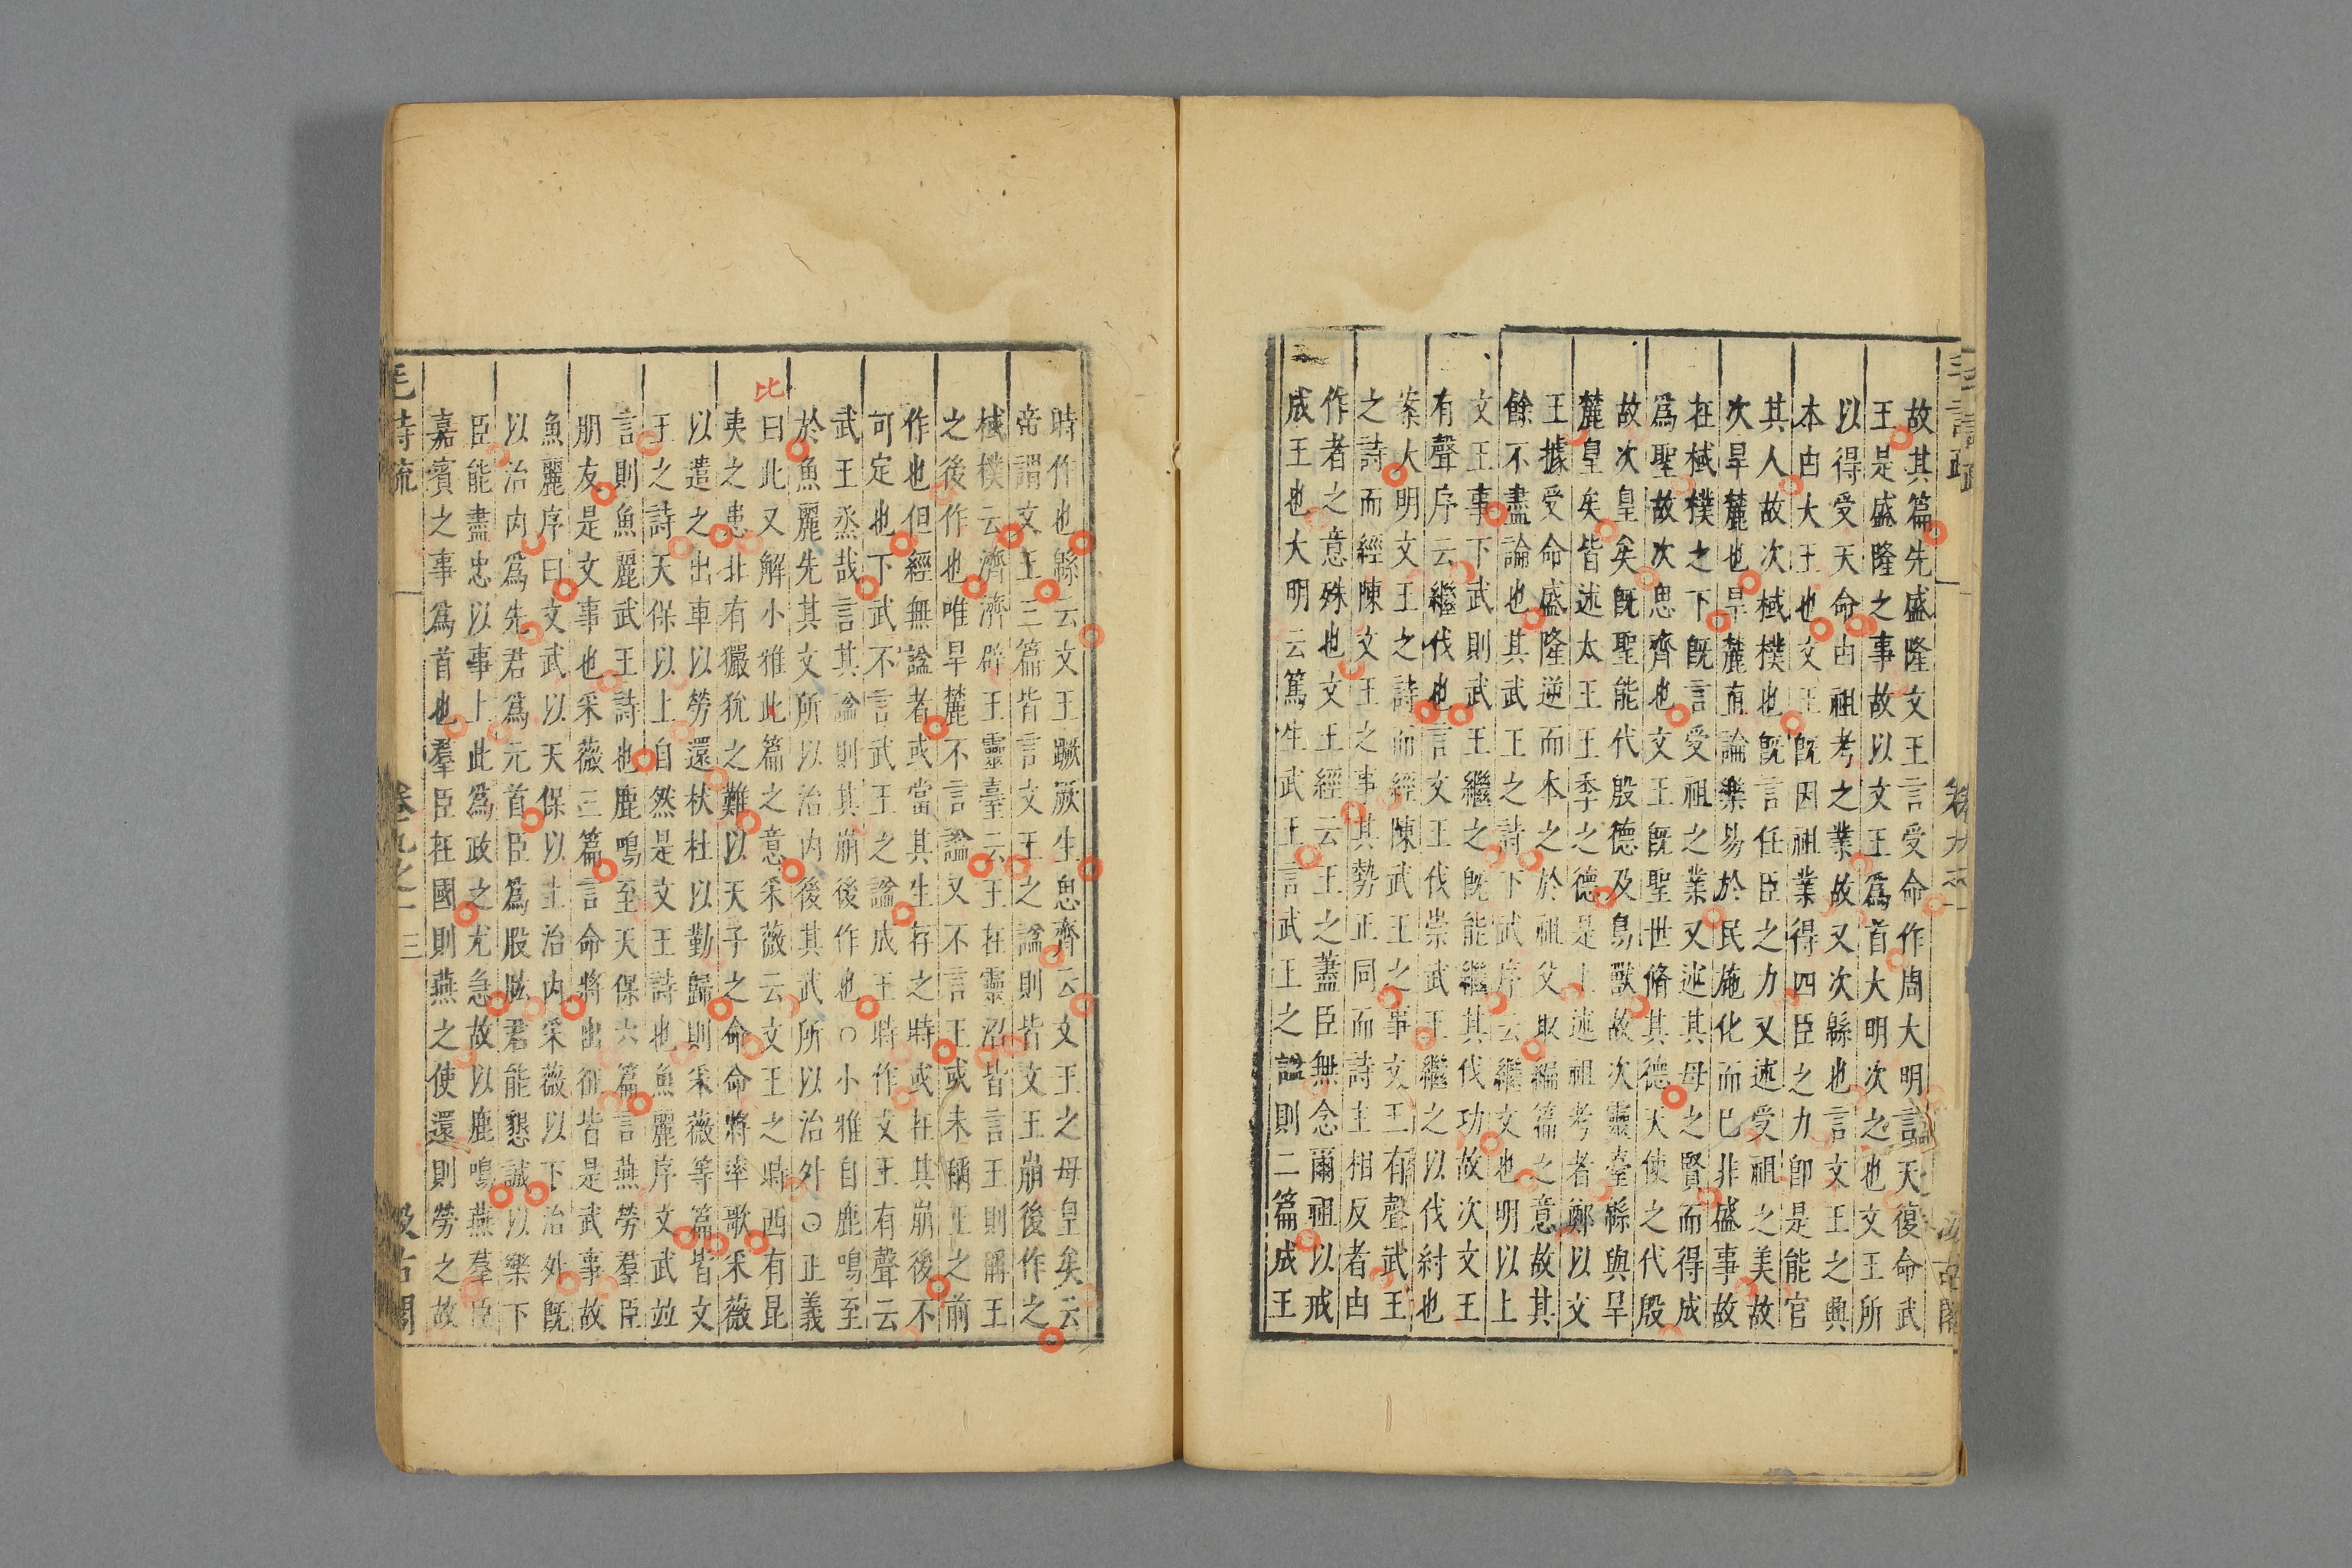 故其篇先盛隆文王言受命作周大明言天復命武
王是盛隆之事故以文王爲首大明次之也文王所
以得受天命由祖考之業故又次緜也言文王之興
本由大王也文王旣因祖業得四臣之力卽是能官
其人故次棫樸也旣言任臣之力又述受祖之美故
次旱麓也旱麓直論樂易於民施化而已非盛事故
在棫樸之下旣言受祖之業又述其母之賢而得成
爲聖故次思齊也文王旣聖世脩其德天使之代殷
故次皇矣旣聖能代殷德及鳥獸故次靈臺緜與旱
麓皇矣皆述太王王季之德是上述祖考者鄭以文
王據受命盛隆逆而本之於祖父取編篇之意故其
餘不盡論也其武王之詩下武序云繼文也明以上
文王事下武則武王繼之旣能繼其伐功故次文王
有聲序云繼伐也言文王伐崇武王繼之以伐紂也
案大明文王之詩而經陳武王之事文王有聲武王
之詩而經陳文王之事其勢正同而詩主相反者由
作者之意殊也文王經云王之藎臣無念爾祖以戒
成王也大明云篤生武王言武王之諡則二篇成王
時作也緜云文王蹶厥生思齊云文王之母皇矣云
帝謂文王三篇皆言文王之諡則皆文王崩後作之
棫樸云濟濟辟王靈臺云王在靈沼皆言王則稱王
之後作也唯旱麓不言諡又不言王或未稱王之前
作也但經無諡者或當其生存之時或在其崩後不
可定也下武不言武王之諡成王時作文王有聲云
武王烝哉言其諡則其崩後作也○小雅自鹿鳴至
於魚麗先其文所以治内後其武所以治外○正義
曰此又解小雅此篇之意采薇云文王之時西有昆
夷之患北有玁狁之難以天子之命命將率歌采薇
以遣之出車以勞還杕杜以勤歸則采薇等篇皆文
王之詩天保以上自然是文王詩也魚麗序文武並
言則魚麗武王詩也鹿鳴至天保六篇言燕勞羣臣
朋友是文事也采薇三篇言命將出征皆是武事故
魚麗序曰文武以天保以上治内采薇以下治外旣
以治内爲先君爲元首臣爲股肱君能懇誠以樂下
臣能盡忠以事上此爲政之尤急故以鹿鳴燕羣臣
嘉賓之事爲首也羣臣在國則燕之使還則勞之故
毛詩疏 卷九之一 三 汲古閣
比